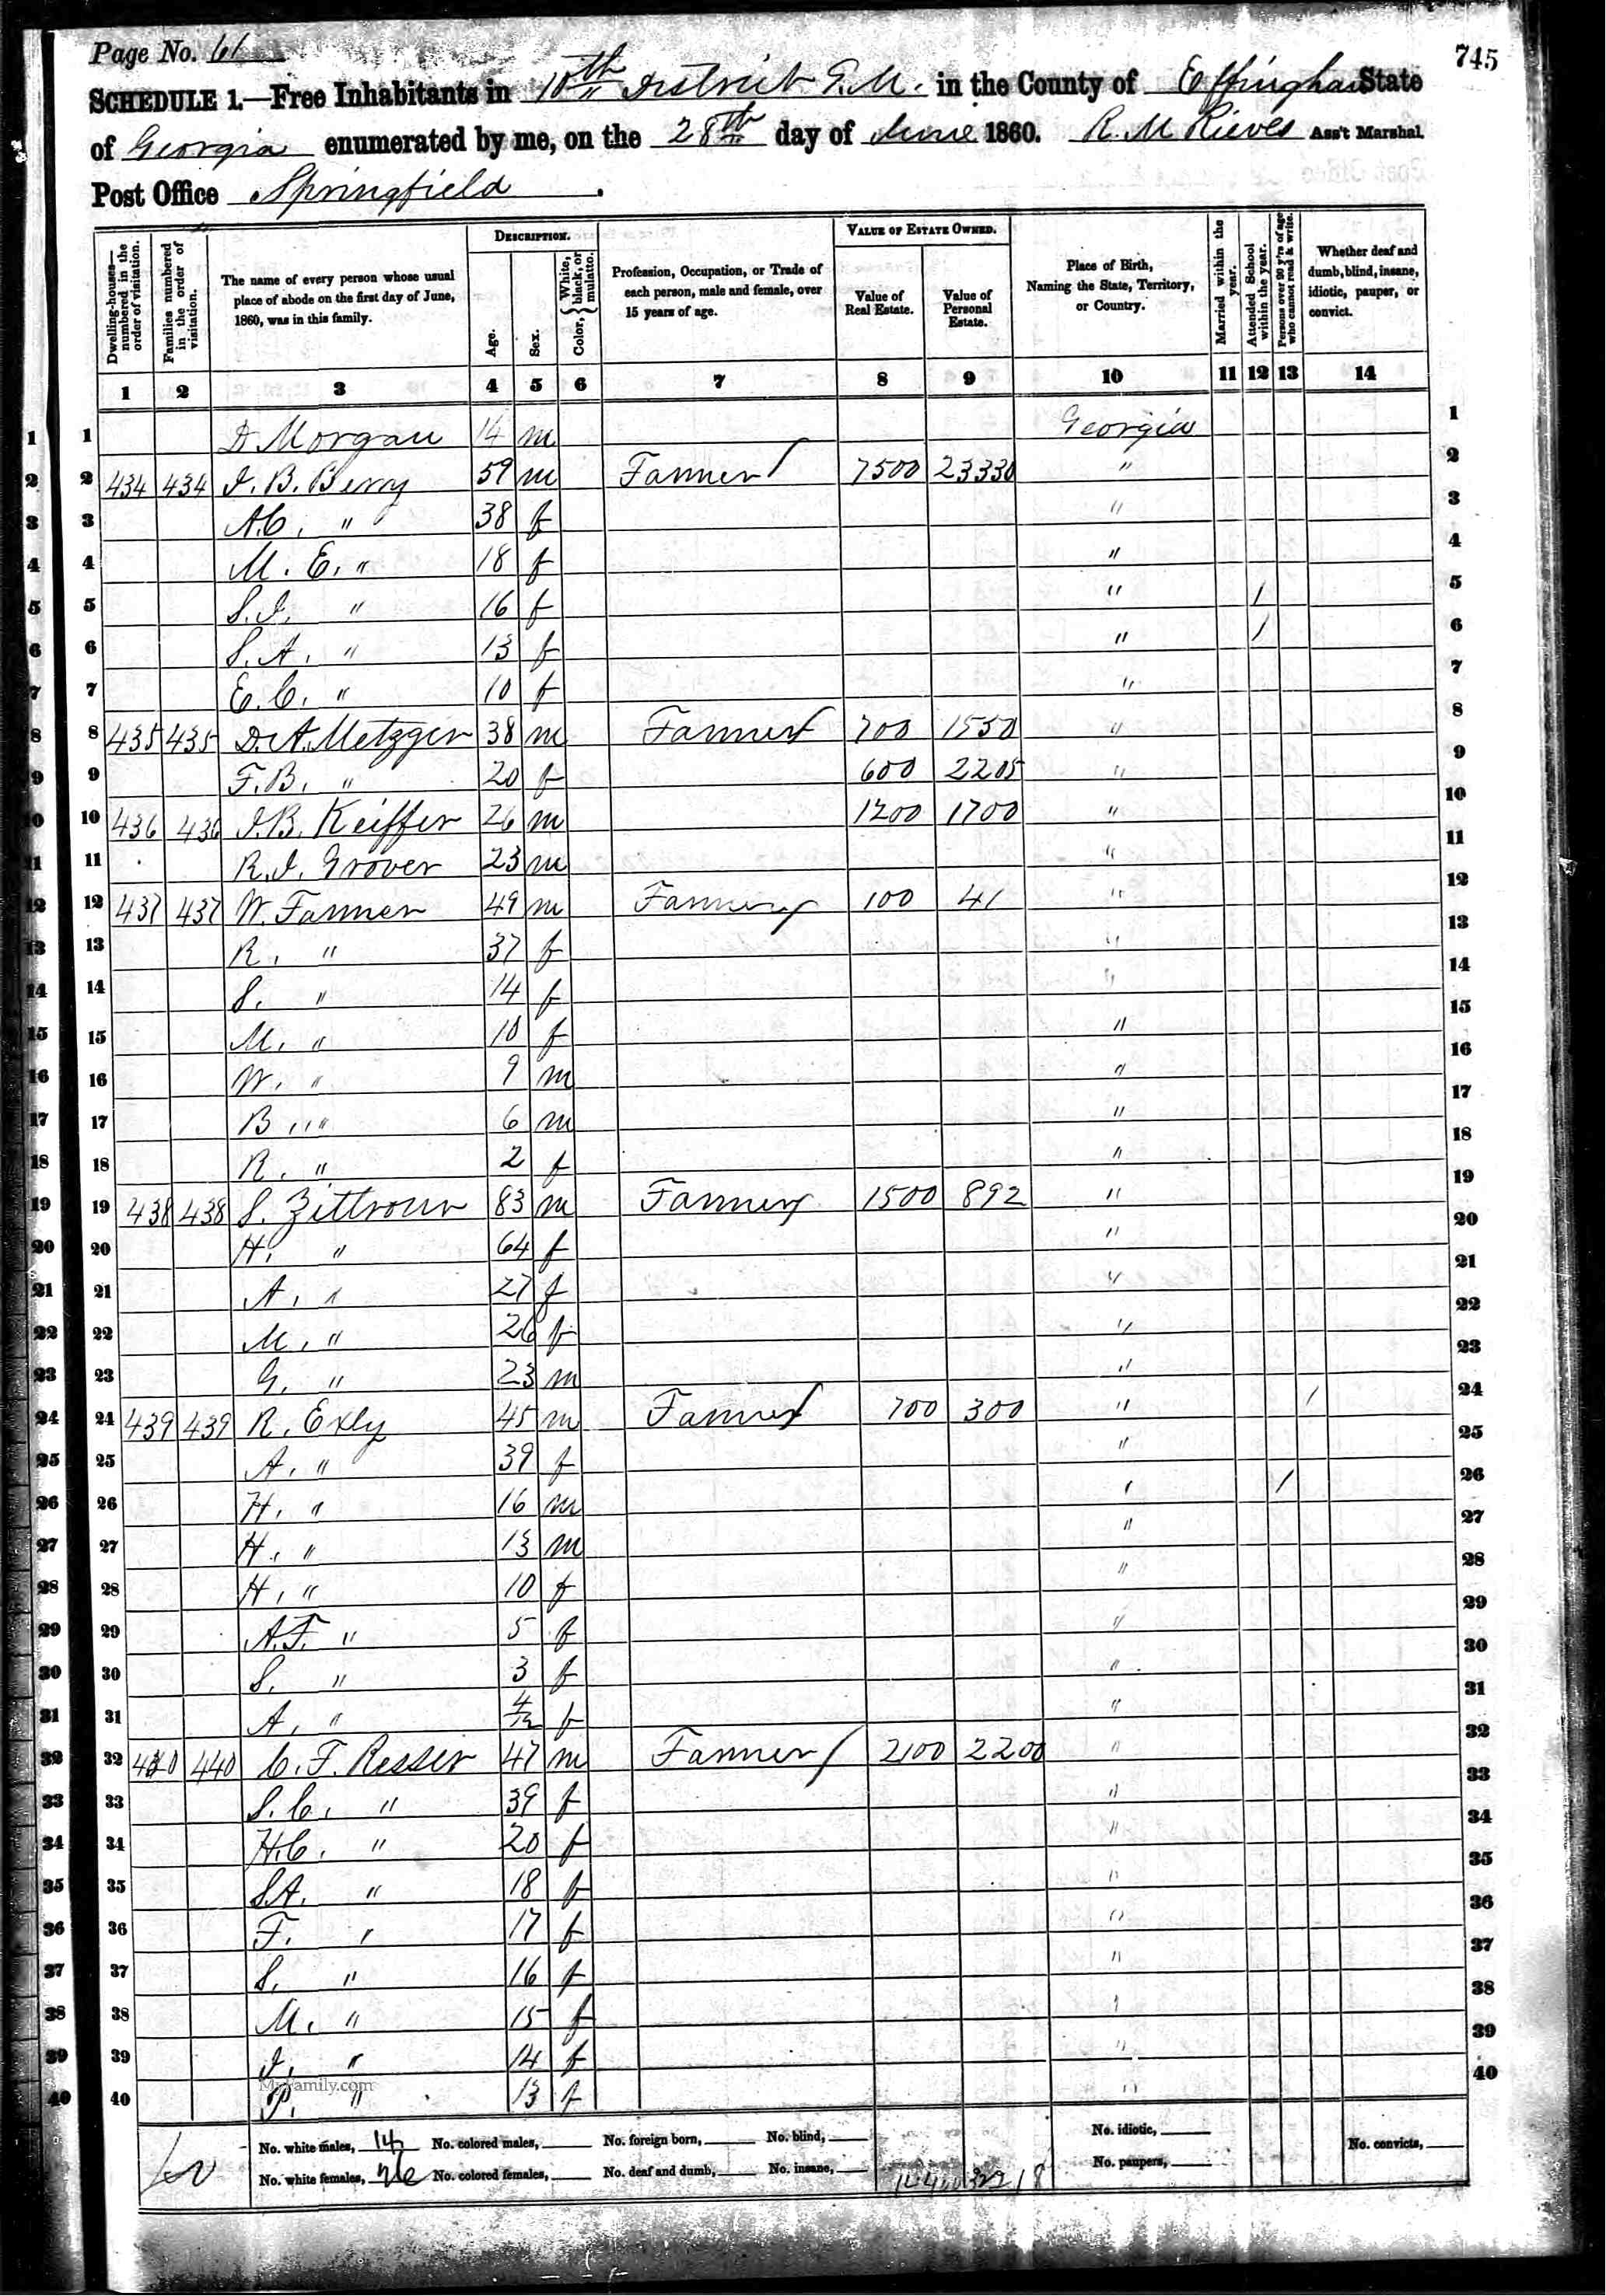 Page No. 61
745
SCHEDULE 1.—Free Inhabitants in 10th District G.M. in the County of Effingham State
of Georgia enumerated by me, on the 28th day of June 1860. R. M Rieves Ass't Marshal.
Post Office Springfield.
Dwelling-houses—numbered in the order of visitation.
Families numbered in the order of visitation.
The name of every person whose usual place of abode on the first day of June, 1860, was in this family.
DESCRIPTION.
Age.
Sex.
Color, { White, black, or mulatto.
Profession, Occupation, or Trade of each person, male and female, over 15 years of age.
VALUE OF ESTATE OWNED.
Value of Real Estate.
Value of Personal Estate.
Place of Birth, Naming the State, Territory, or Country.
Married within the year.
Attended School within the year.
Persons over 20 y'rs of age who cannot read & write.
Whether deaf and dumb, blind, insane, idiotic, pauper, or convict.
1 2 3 4 5 6 7 8 9 10 11 12 13 14
1 1 D Morgan 14 m Georgia 1
2 2 434 434 J. B. Berry 59 m Farmer 7500 23330 " 2
3 3 A.C. " 38 f " 3
4 4 M. E. " 18 f " 4
5 5 S.J. " 16 f " / 5
6 6 S. A. " 13 f " / 6
7 7 E. C. " 10 f " 7
8 8 435 435 D. A. Metzger 38 m Farmer 700 1550 " 8
9 9 F. B. " 20 f 600 2205 " 9
10 10 436 436 J. B. Keiffer 26 m 1200 1700 " 10
11 11 R. J. Grover 23 m " 11
12 12 437 437 W. Farmer 49 m Farmer 100 41 " 12
13 13 R. " 37 f " 13
14 14 S. " 14 f " 14
15 15 M. " 10 f " 15
16 16 W. " 9 m " 16
17 17 B " 6 m " 17
18 18 R. " 2 f " 18
19 19 438 438 S. Zittrour 83 m Farmer 1500 892 " 19
20 20 H. " 64 f " 20
21 21 A. " 27 f " 21
22 22 M. " 26 f " 22
23 23 G. " 23 m " 23
24 24 439 439 R. Exly 45 m Farmer 700 300 " / 24
25 25 A. " 39 f " 25
26 26 H. " 16 m " / 26
27 27 H. " 13 m " 27
28 28 H. " 10 f " 28
29 29 A.F. " 5 f " 29
30 30 S. " 3 f " 30
31 31 A. " 4/12 f " 31
32 32 440 440 C. F. Resser 47 m Farmer 2100 2200 " 32
33 33 S. C. " 39 f " 33
34 34 H.C. " 20 f " 34
35 35 S.A. " 18 f " 35
36 36 F. " 17 f " 36
37 37 S. " 16 f " 37
38 38 M. " 15 f " 38
39 39 J. " 14 f " 39
40 40 P. " 13 f " 40
MyFamily.com
No. white males, 14 No. colored males, No. foreign born, No. blind, No. idiotic, No. convicts,
No. white females, 26 No. colored females, No. deaf and dumb, No. insane, No. paupers,